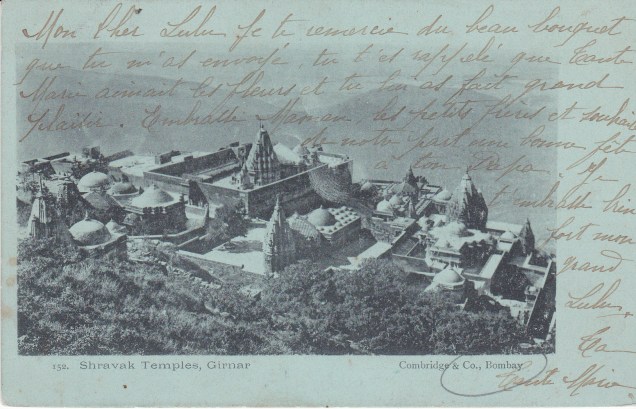 Mon cher Lulu je te remercie du beau bouquet
que tu m'as envoyé, tu t'es rappelé que Tante
Marie aimait les fleurs et tu lui as fait grand
plaisir. Embrasse Maman les petits frères et souhaite
de notre part une bonne fête
à ton Papa. Je
t'embrasse bien
fort mon
grand
Lulu.
Ta
Tante Marie
152. Shravak Temples, Girnar
Combridge & Co., Bombay